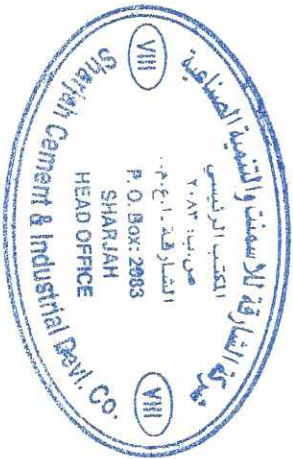 شركة الشارقة للاسمنت والتنمية الصناعية
VIII
المكتب الرئيسي
ص.ب: ٢٠٨٣
الشارقة - ا.ع.م.
P. O. Box: 2083
SHARJAH
HEAD OFFICE
VIII
Sharjah Cement & Industrial Devl. Co.